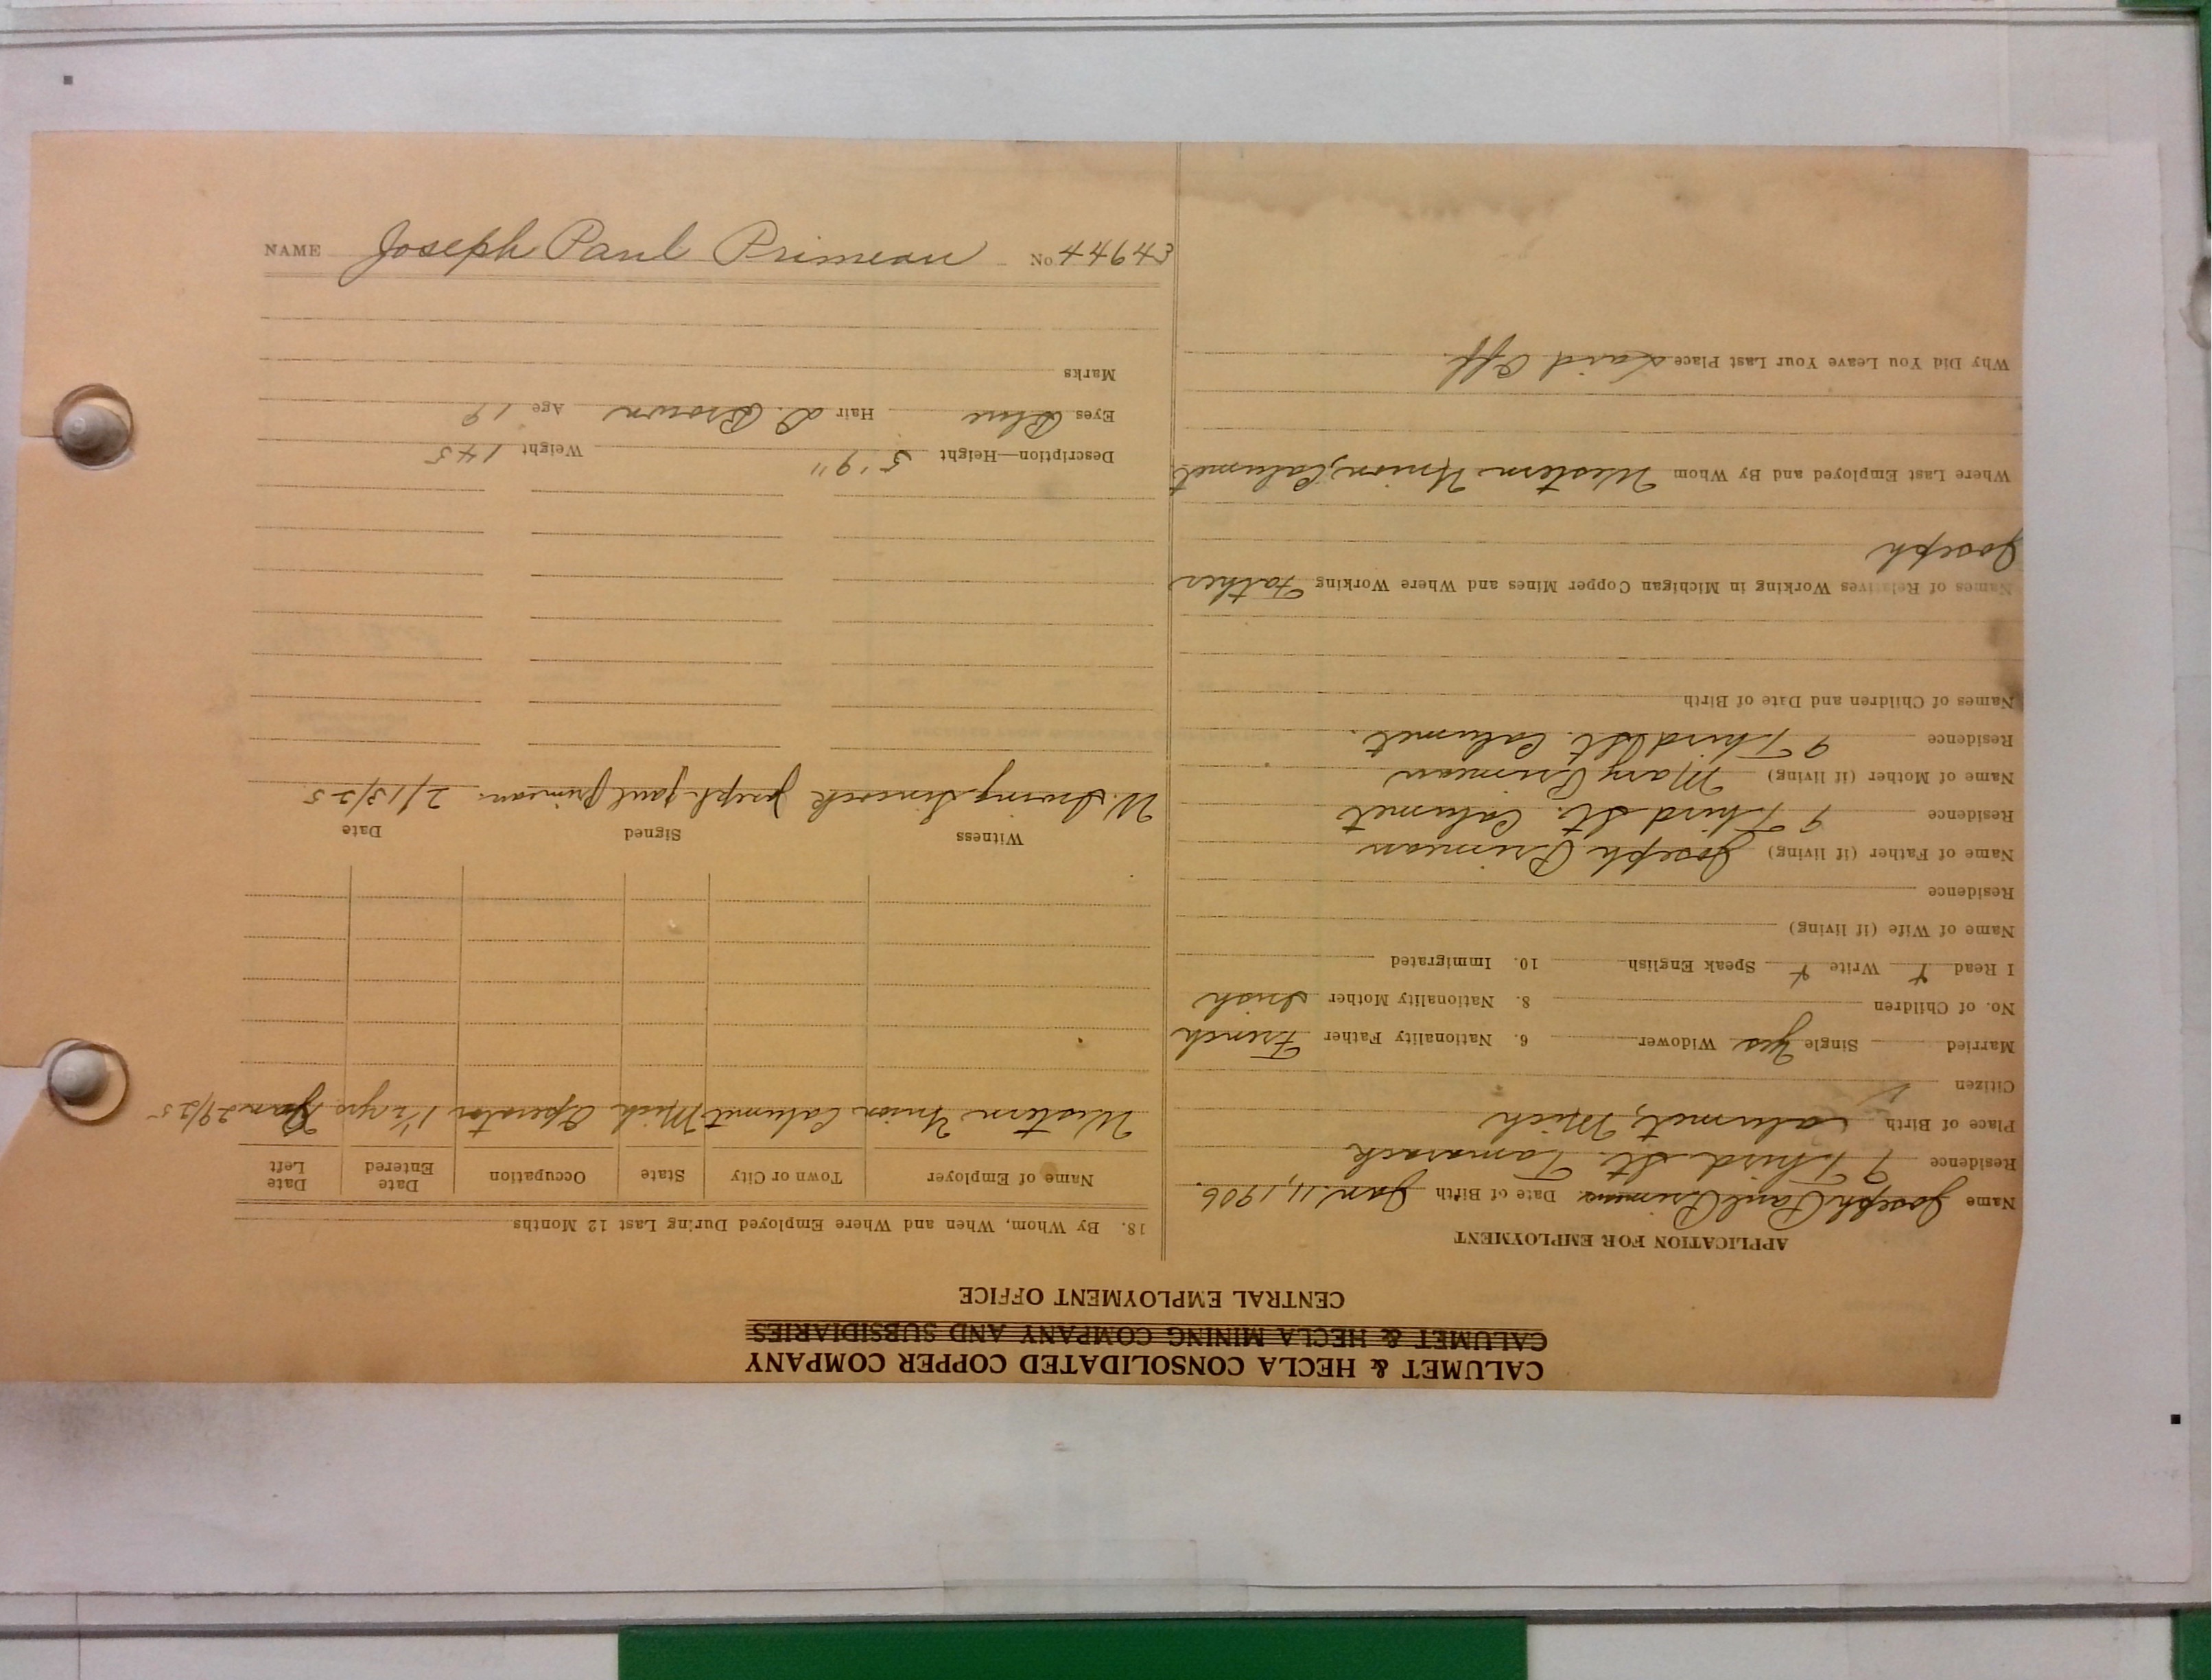 CALUMET & HECLA CONSOLIDATED COPPER COMPANY
CALUMET & HECLA MINING COMPANY AND SUBSIDIARIES
CENTRAL EMPLOYMENT OFFICE
APPLICATION FOR EMPLOYMENT
Name Joseph Paul Primeau Date of Birth Jan. 11, 1906.
Residence 9 Third St. Tamarack
Place of Birth Calumet, Mich
Citizen
Married Single Yes Widower 6. Nationality Father French
No. of Children 8. Nationality Mother Irish
I Read Write Speak English 10. Immigrated
Name of Wife (if living)
Residence
Name of Father (if living) Joseph Primeau
Residence 9 Third St. Calumet
Name of Mother (if living) Mary Primeau
Residence 9 Third St. Calumet.
Names of Children and Date of Birth
Names of Relatives Working in Michigan Copper Mines and Where Working Father
Joseph
Where Last Employed and By Whom Western Union, Calumet
Why Did You Leave Your Last Place Laid Off.
18. By Whom, When and Where Employed During Last 12 Months
Name of Employer Town or City State Occupation Date Entered Date Left
Western Union Calumet Mich Operator 1½ yrs Jan 29/25
Witness Signed Date
W. Irving Joseph Paul Primeau. 2/13/25
Description—Height 5'9" Weight 145
Eyes Blue Hair D. Brown Age 19
Marks
NAME Joseph Paul Primeau No. 44643